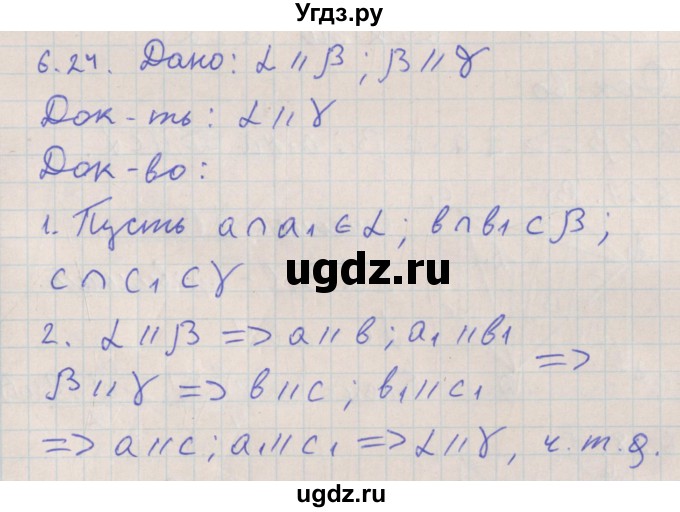 Угдз.ру
6.24. Дано: α ∥ β; β ∥ γ
Док-ть: α ∥ γ
Док-во:
1. Пусть a ∩ a₁ ∈ α; в ∩ в₁ ⊂ β;
c ∩ c₁ ⊂ γ
ugdz.ru
2. α ∥ β => a ∥ в; a₁ ∥ в₁
=>
β ∥ γ => в ∥ c; в₁ ∥ c₁
=> a ∥ c; a₁ ∥ c₁ => α ∥ γ, ч.т.д.
ugdz.ru